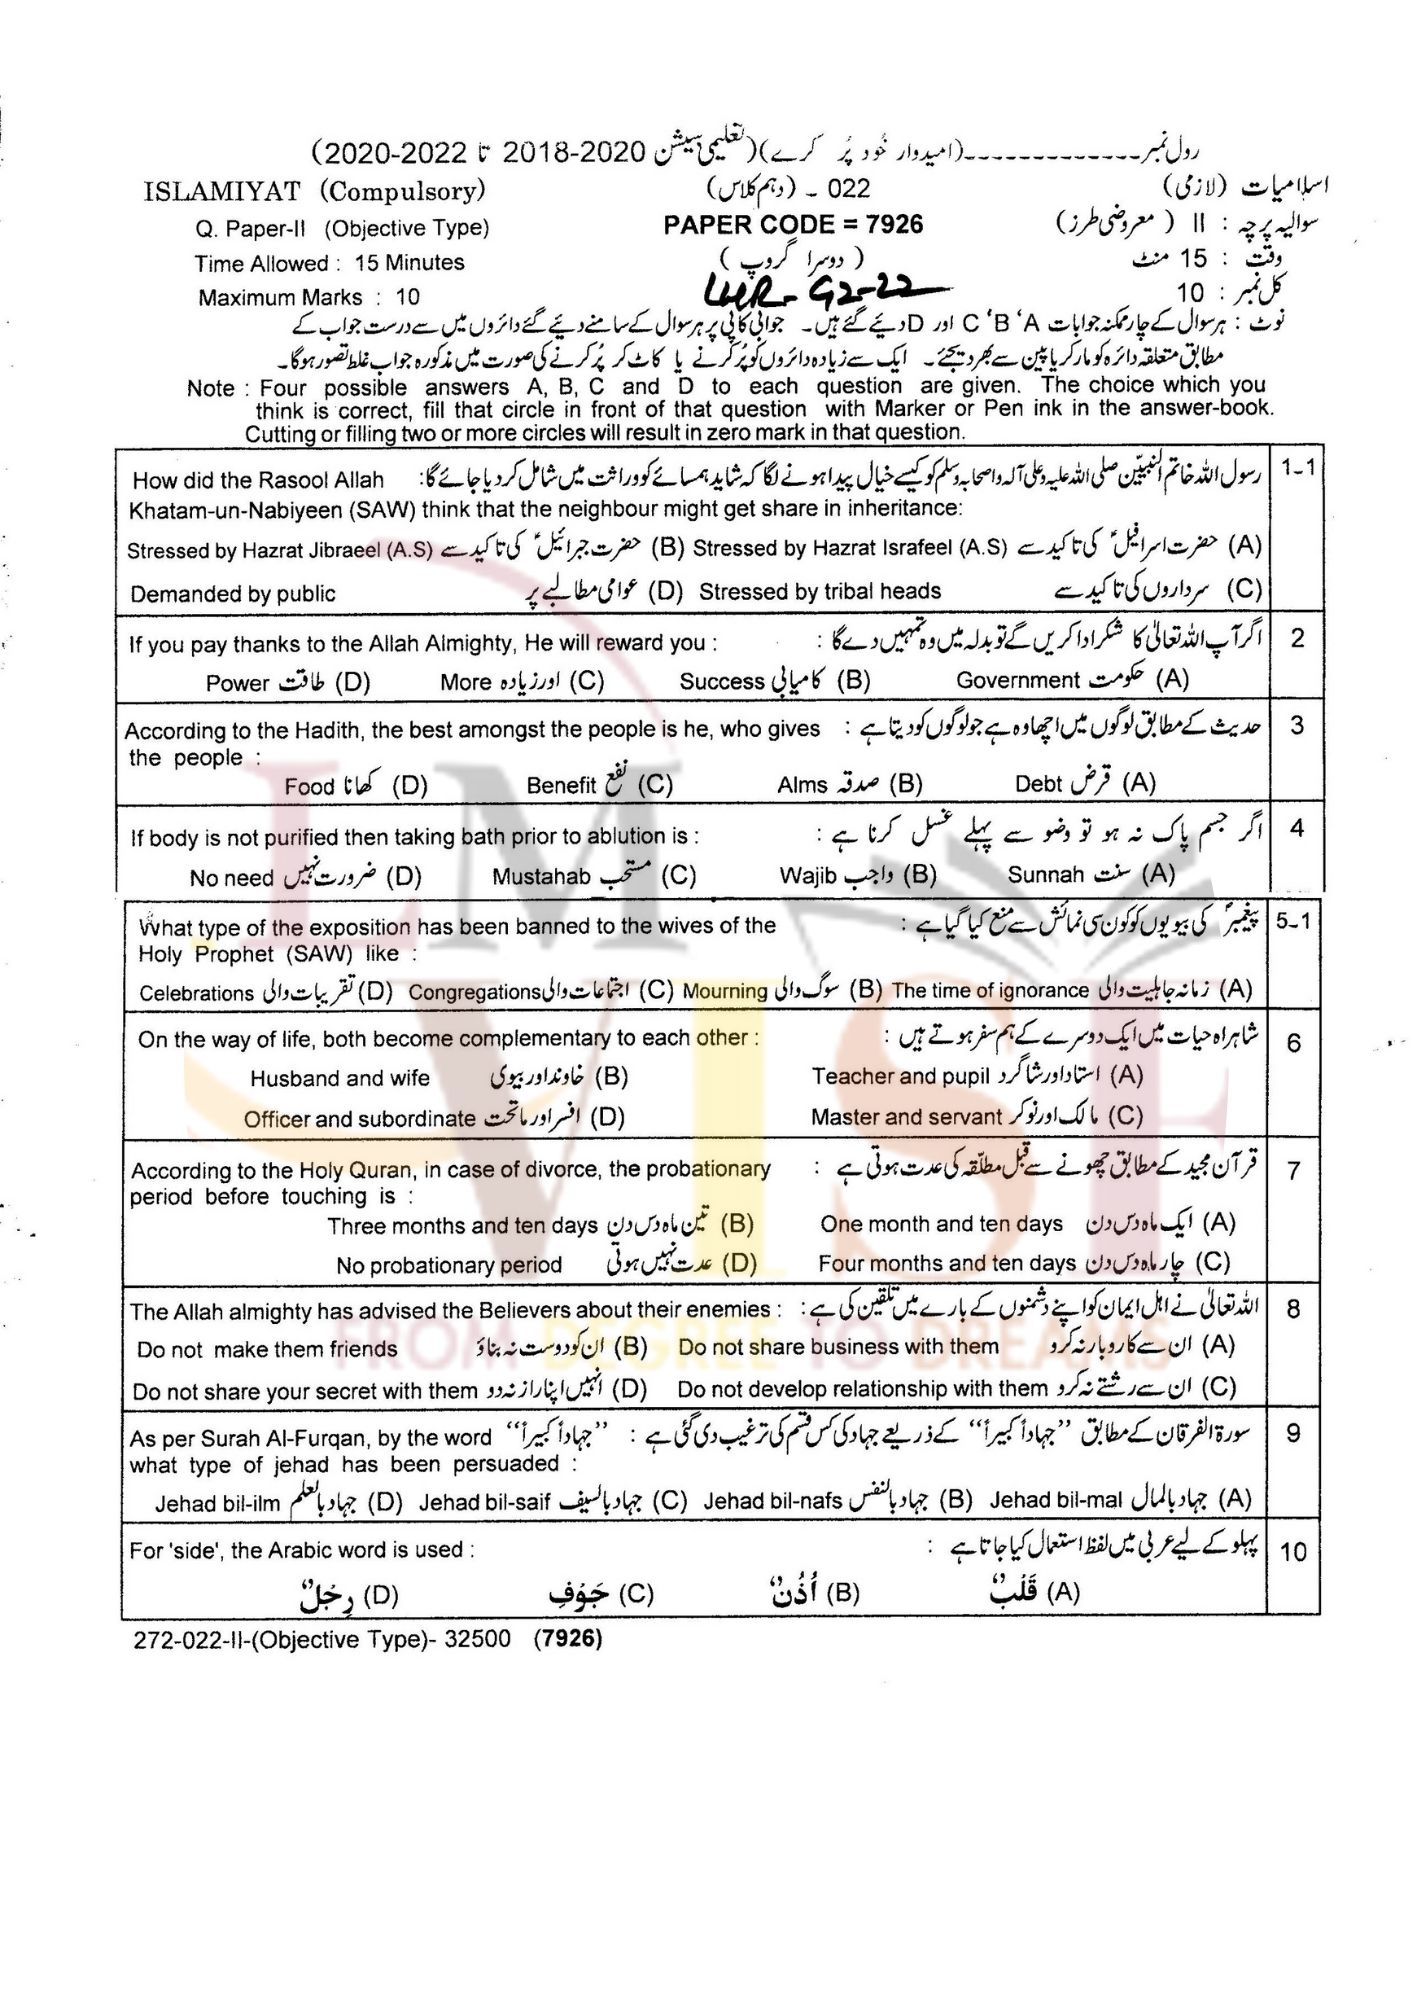 رول نمبر ـــــــــــــــ (امیدوار خود پُر کرے) (تعلیمی سیشن 2020-2018 تا 2022-2020)
ISLAMIYAT (Compulsory) 022 ـ (دہم کلاس) اسلامیات (لازمی)
Q. Paper-II (Objective Type) PAPER CODE = 7926 سوالیہ پرچہ : II (معروضی طرز)
Time Allowed : 15 Minutes (دوسرا گروپ) وقت : 15 منٹ
Maximum Marks : 10 LHR-G2-22 کل نمبر : 10
نوٹ : ہر سوال کے چار ممکنہ جوابات A ‘B ‘C اور D دیے گئے ہیں۔ جوابی کاپی پر ہر سوال کے سامنے دیے گئے دائروں میں سے درست جواب کے
مطابق متعلقہ دائرہ کو مارکر یا پین سے بھر دیجئے۔ ایک سے زیادہ دائروں کو پُر کرنے یا کاٹ کر پُر کرنے کی صورت میں مذکورہ جواب غلط تصور ہوگا۔
Note : Four possible answers A, B, C and D to each question are given. The choice which you
think is correct, fill that circle in front of that question with Marker or Pen ink in the answer-book.
Cutting or filling two or more circles will result in zero mark in that question.
How did the Rasool Allah رسول اللہ خاتم النبیّین صلی اللہ علیہ وعلی آلہ واصحابہ وسلم کو کیسے خیال پیدا ہونے لگا کہ شاید ہمسائے کو وراثت میں شامل کر دیا جائے گا: 1-1
Khatam-un-Nabiyeen (SAW) think that the neighbour might get share in inheritance:
Stressed by Hazrat Jibraeel (A.S) حضرت جبرائیلؑ کی تاکید سے (B) Stressed by Hazrat Israfeel (A.S) حضرت اسرافیلؑ کی تاکید سے (A)
Demanded by public عوامی مطالبے پر (D) Stressed by tribal heads سرداروں کی تاکید سے (C)
If you pay thanks to the Allah Almighty, He will reward you : اگر آپ اللہ تعالیٰ کا شکر ادا کریں گے تو بدلہ میں وہ تمہیں دے گا : 2
Power طاقت (D) More اور زیادہ (C) Success کامیابی (B) Government حکومت (A)
According to the Hadith, the best amongst the people is he, who gives حدیث کے مطابق لوگوں میں اچھا وہ ہے جو لوگوں کو دیتا ہے : 3
the people :
Food کھانا (D) Benefit نفع (C) Alms صدقہ (B) Debt قرض (A)
If body is not purified then taking bath prior to ablution is : اگر جسم پاک نہ ہو تو وضو سے پہلے غسل کرنا ہے : 4
No need ضرورت نہیں (D) Mustahab مستحب (C) Wajib واجب (B) Sunnah سنت (A)
What type of the exposition has been banned to the wives of the پیغمبرؐ کی بیویوں کو کون سی نمائش سے منع کیا گیا ہے : 5-1
Holy Prophet (SAW) like :
Celebrations تقریبات والی (D) Congregations اجتماعات والی (C) Mourning سوگ والی (B) The time of ignorance زمانہ جاہلیت والی (A)
On the way of life, both become complementary to each other : شاہراہ حیات میں ایک دوسرے کے ہم سفر ہوتے ہیں : 6
Husband and wife خاوند اور بیوی (B) Teacher and pupil استاد اور شاگرد (A)
Officer and subordinate افسر اور ماتحت (D) Master and servant مالک اور نوکر (C)
According to the Holy Quran, in case of divorce, the probationary قرآن مجید کے مطابق چھونے سے قبل مطلّقہ کی عدت ہوتی ہے : 7
period before touching is :
Three months and ten days تین ماہ دس دن (B) One month and ten days ایک ماہ دس دن (A)
No probationary period عدت نہیں ہوتی (D) Four months and ten days چار ماہ دس دن (C)
The Allah almighty has advised the Believers about their enemies : اللہ تعالیٰ نے اہل ایمان کو اپنے دشمنوں کے بارے میں تلقین کی ہے : 8
Do not make them friends ان کو دوست نہ بناؤ (B) Do not share business with them ان سے کاروبار نہ کرو (A)
Do not share your secret with them انہیں اپنا راز نہ دو (D) Do not develop relationship with them ان سے رشتے نہ کرو (C)
As per Surah Al-Furqan, by the word “جہاداً کبیراً” سورۃ الفرقان کے مطابق “جہاداً کبیراً” کے ذریعے جہاد کی کس قسم کی ترغیب دی گئی ہے : 9
what type of jehad has been persuaded :
Jehad bil-ilm جہاد بالعلم (D) Jehad bil-saif جہاد بالسیف (C) Jehad bil-nafs جہاد بالنفس (B) Jehad bil-mal جہاد بالمال (A)
For 'side', the Arabic word is used : پہلو کے لیے عربی میں لفظ استعمال کیا جاتا ہے : 10
رِجْلٌ (D) جَوْفِ (C) اُذُنٌ (B) قَلْبٌ (A)
272-022-II-(Objective Type)- 32500 (7926)
LM VISE
FROM DEGREE TO DREAMS